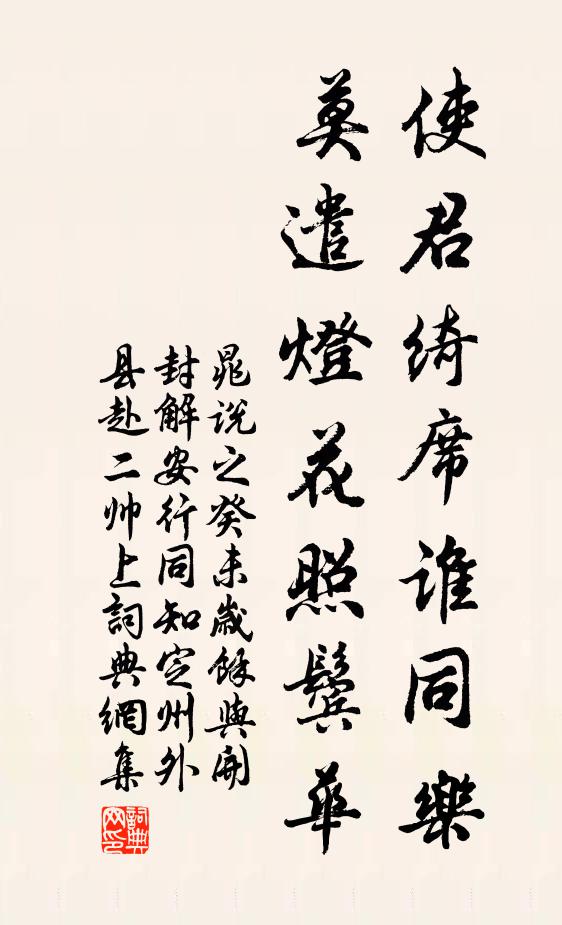 使君绮席谁同樂
莫遣燈花照鬓華
晁说之癸未歲餘與開
封解安行同知定州外
县赴二帅上詞典網集
詞典
网印